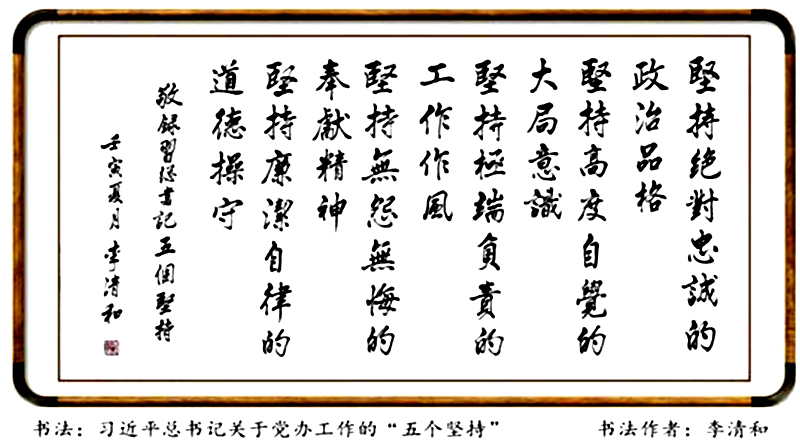 堅持絕對忠誠的
政治品格
堅持高度自覺的
大局意識
堅持極端負責的
工作作風
堅持無怨無悔的
奉獻精神
堅持廉潔自律的
道德操守
敬錄習總書記五個堅持
壬寅夏月李清和
书法：习近平总书记关于党办工作的“五个坚持”
书法作者：李清和